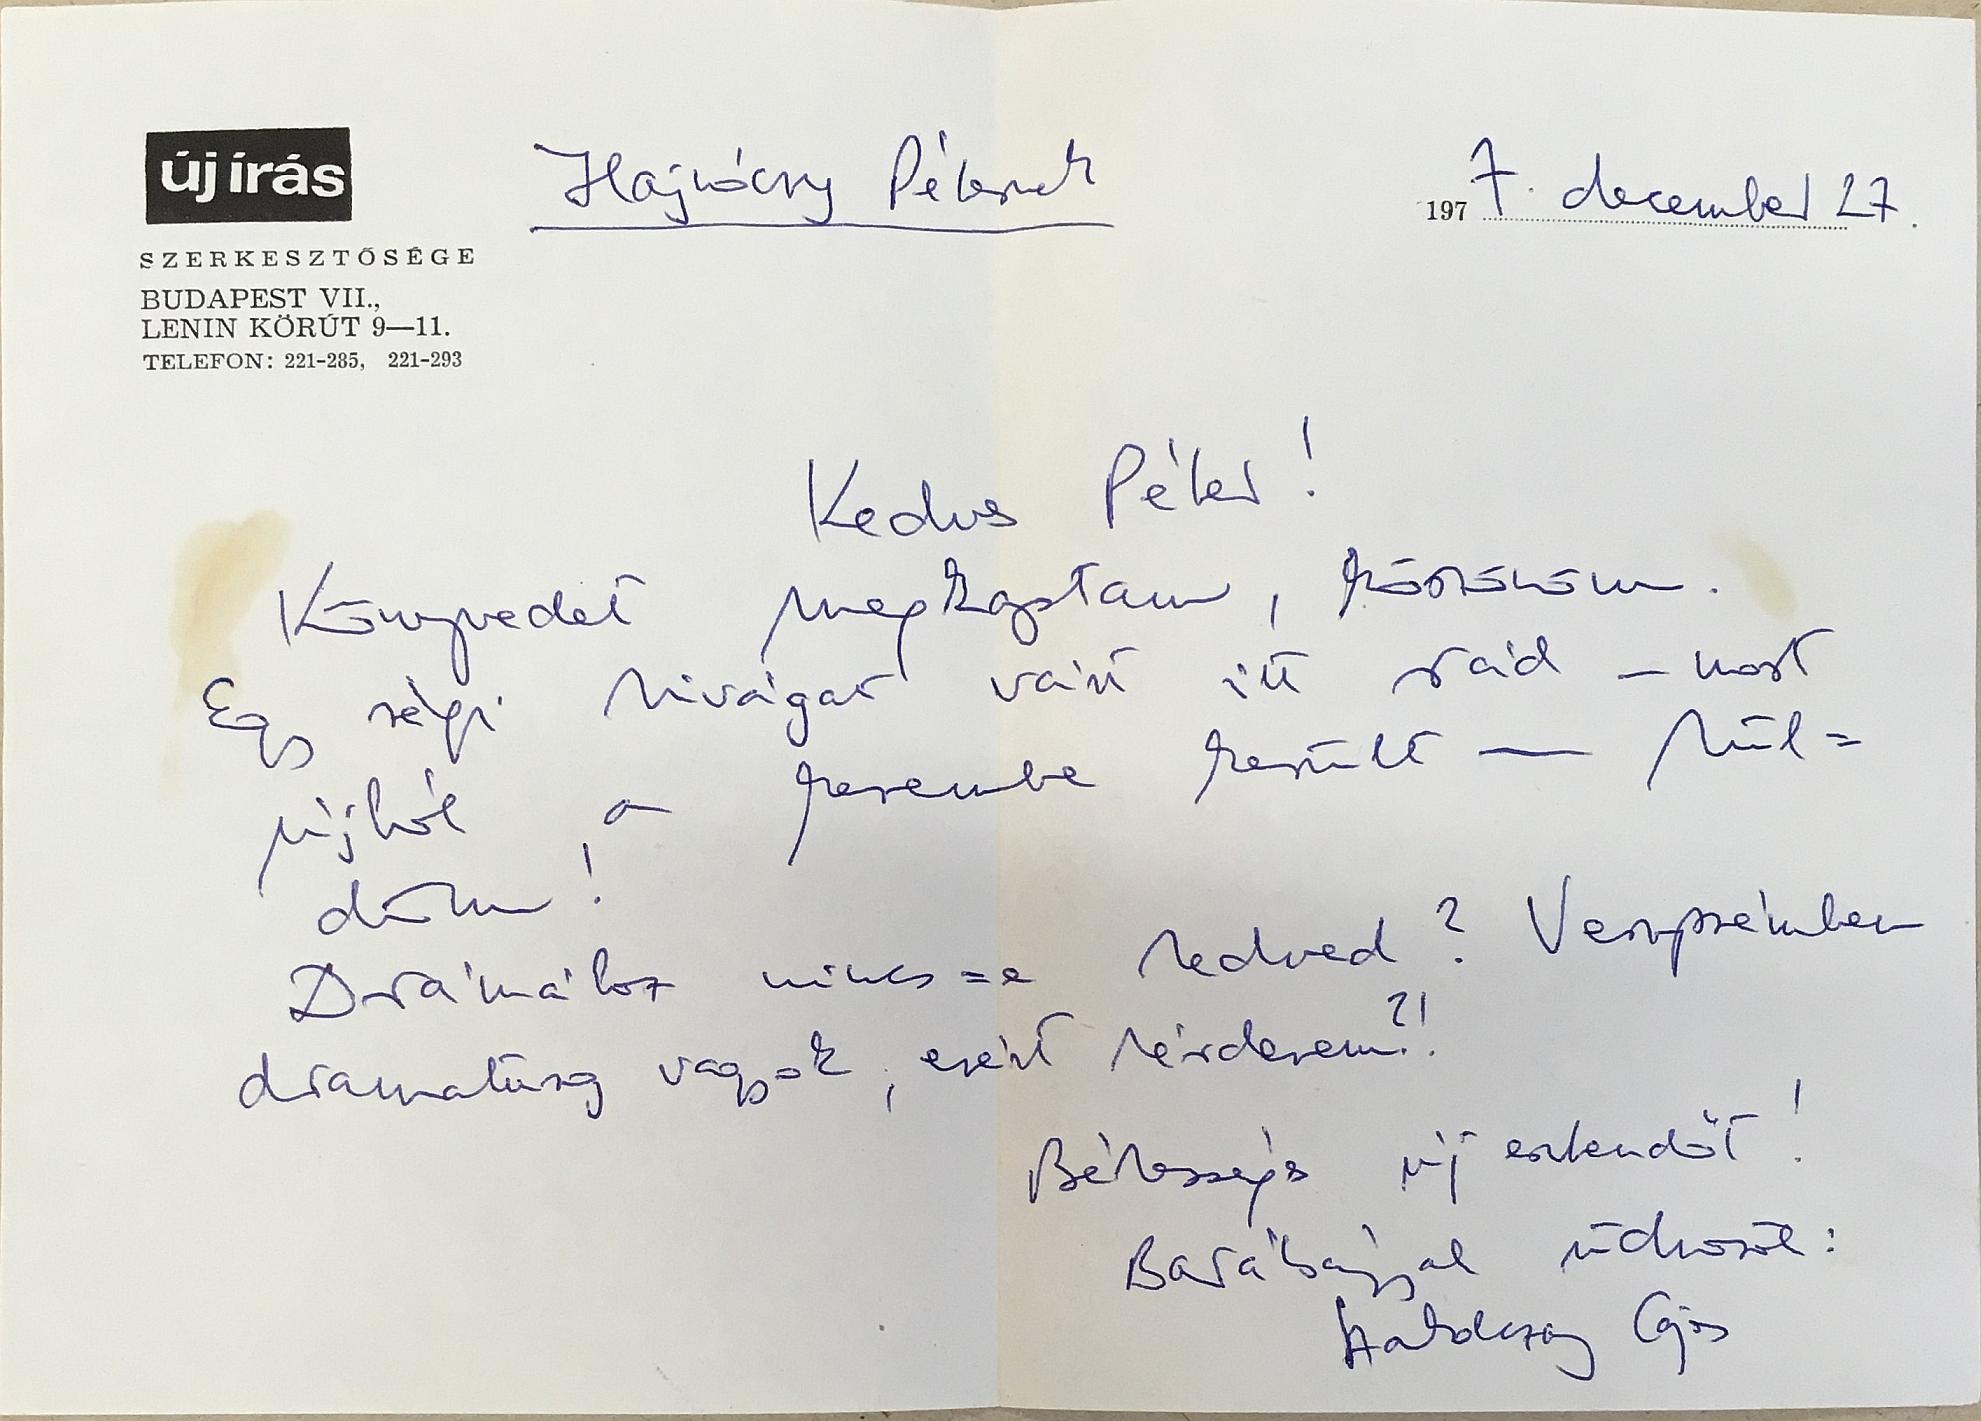 új írás
SZERKESZTŐSÉGE
BUDAPEST VII.,
LENIN KÖRÚT 9—11.
TELEFON: 221-285, 221-293
Hajnóczy Péternek
1977. december 27.
Kedves Péter!
Könyvedet megkaptam, köszönöm.
Egy régi kivágat várt itt rád – most
újból a kezembe került — kül=
döm!
Drámához nincs=e kedved? Veszprémben
dramaturg vagyok, ezért kérdezem?!
Békességes új esztendőt!
Barátsággal üdvözöl: